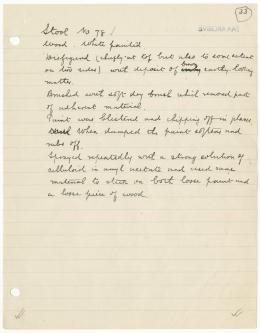 33
TAA ARCHIVES
Stool No 78
Wood white painted
Disfigured (chiefly at top but also to some extent
on two sides) with deposit of brown earthy-looking
matter.
Brushed with soft dry brush which removed part
of adherent material.
Paint was blistered and chipping off in places
When damped the paint softens and
rubs off.
Sprayed repeatedly with a strong solution of
celluloid in amyl acetate and used same
material to stick on both loose paint and
a loose piece of wood